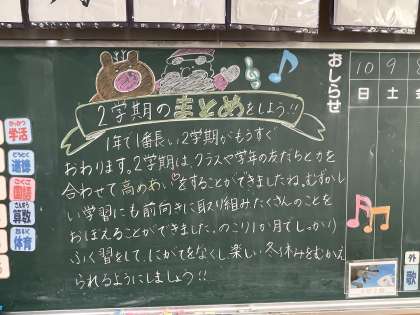 2学期のまとめをしよう!!
1年で1番長い2学期がもうすぐ
おわります。2学期は、クラスや学年の友だちと力を
合わせて高めあいをすることができましたね。むずかし
い学習にも前向きに取り組みたくさんのことを
おぼえることができました。のこり1か月でしっかり
ふく習をして、にがてをなくし楽しい冬休みをむかえ
られるようにしましょう!!
おしらせ
10 9 8
日 土 金
かっかつ
学活
どうとく
道徳
こくご
国語
さんすう
算数
たいいく
体育
外
歌